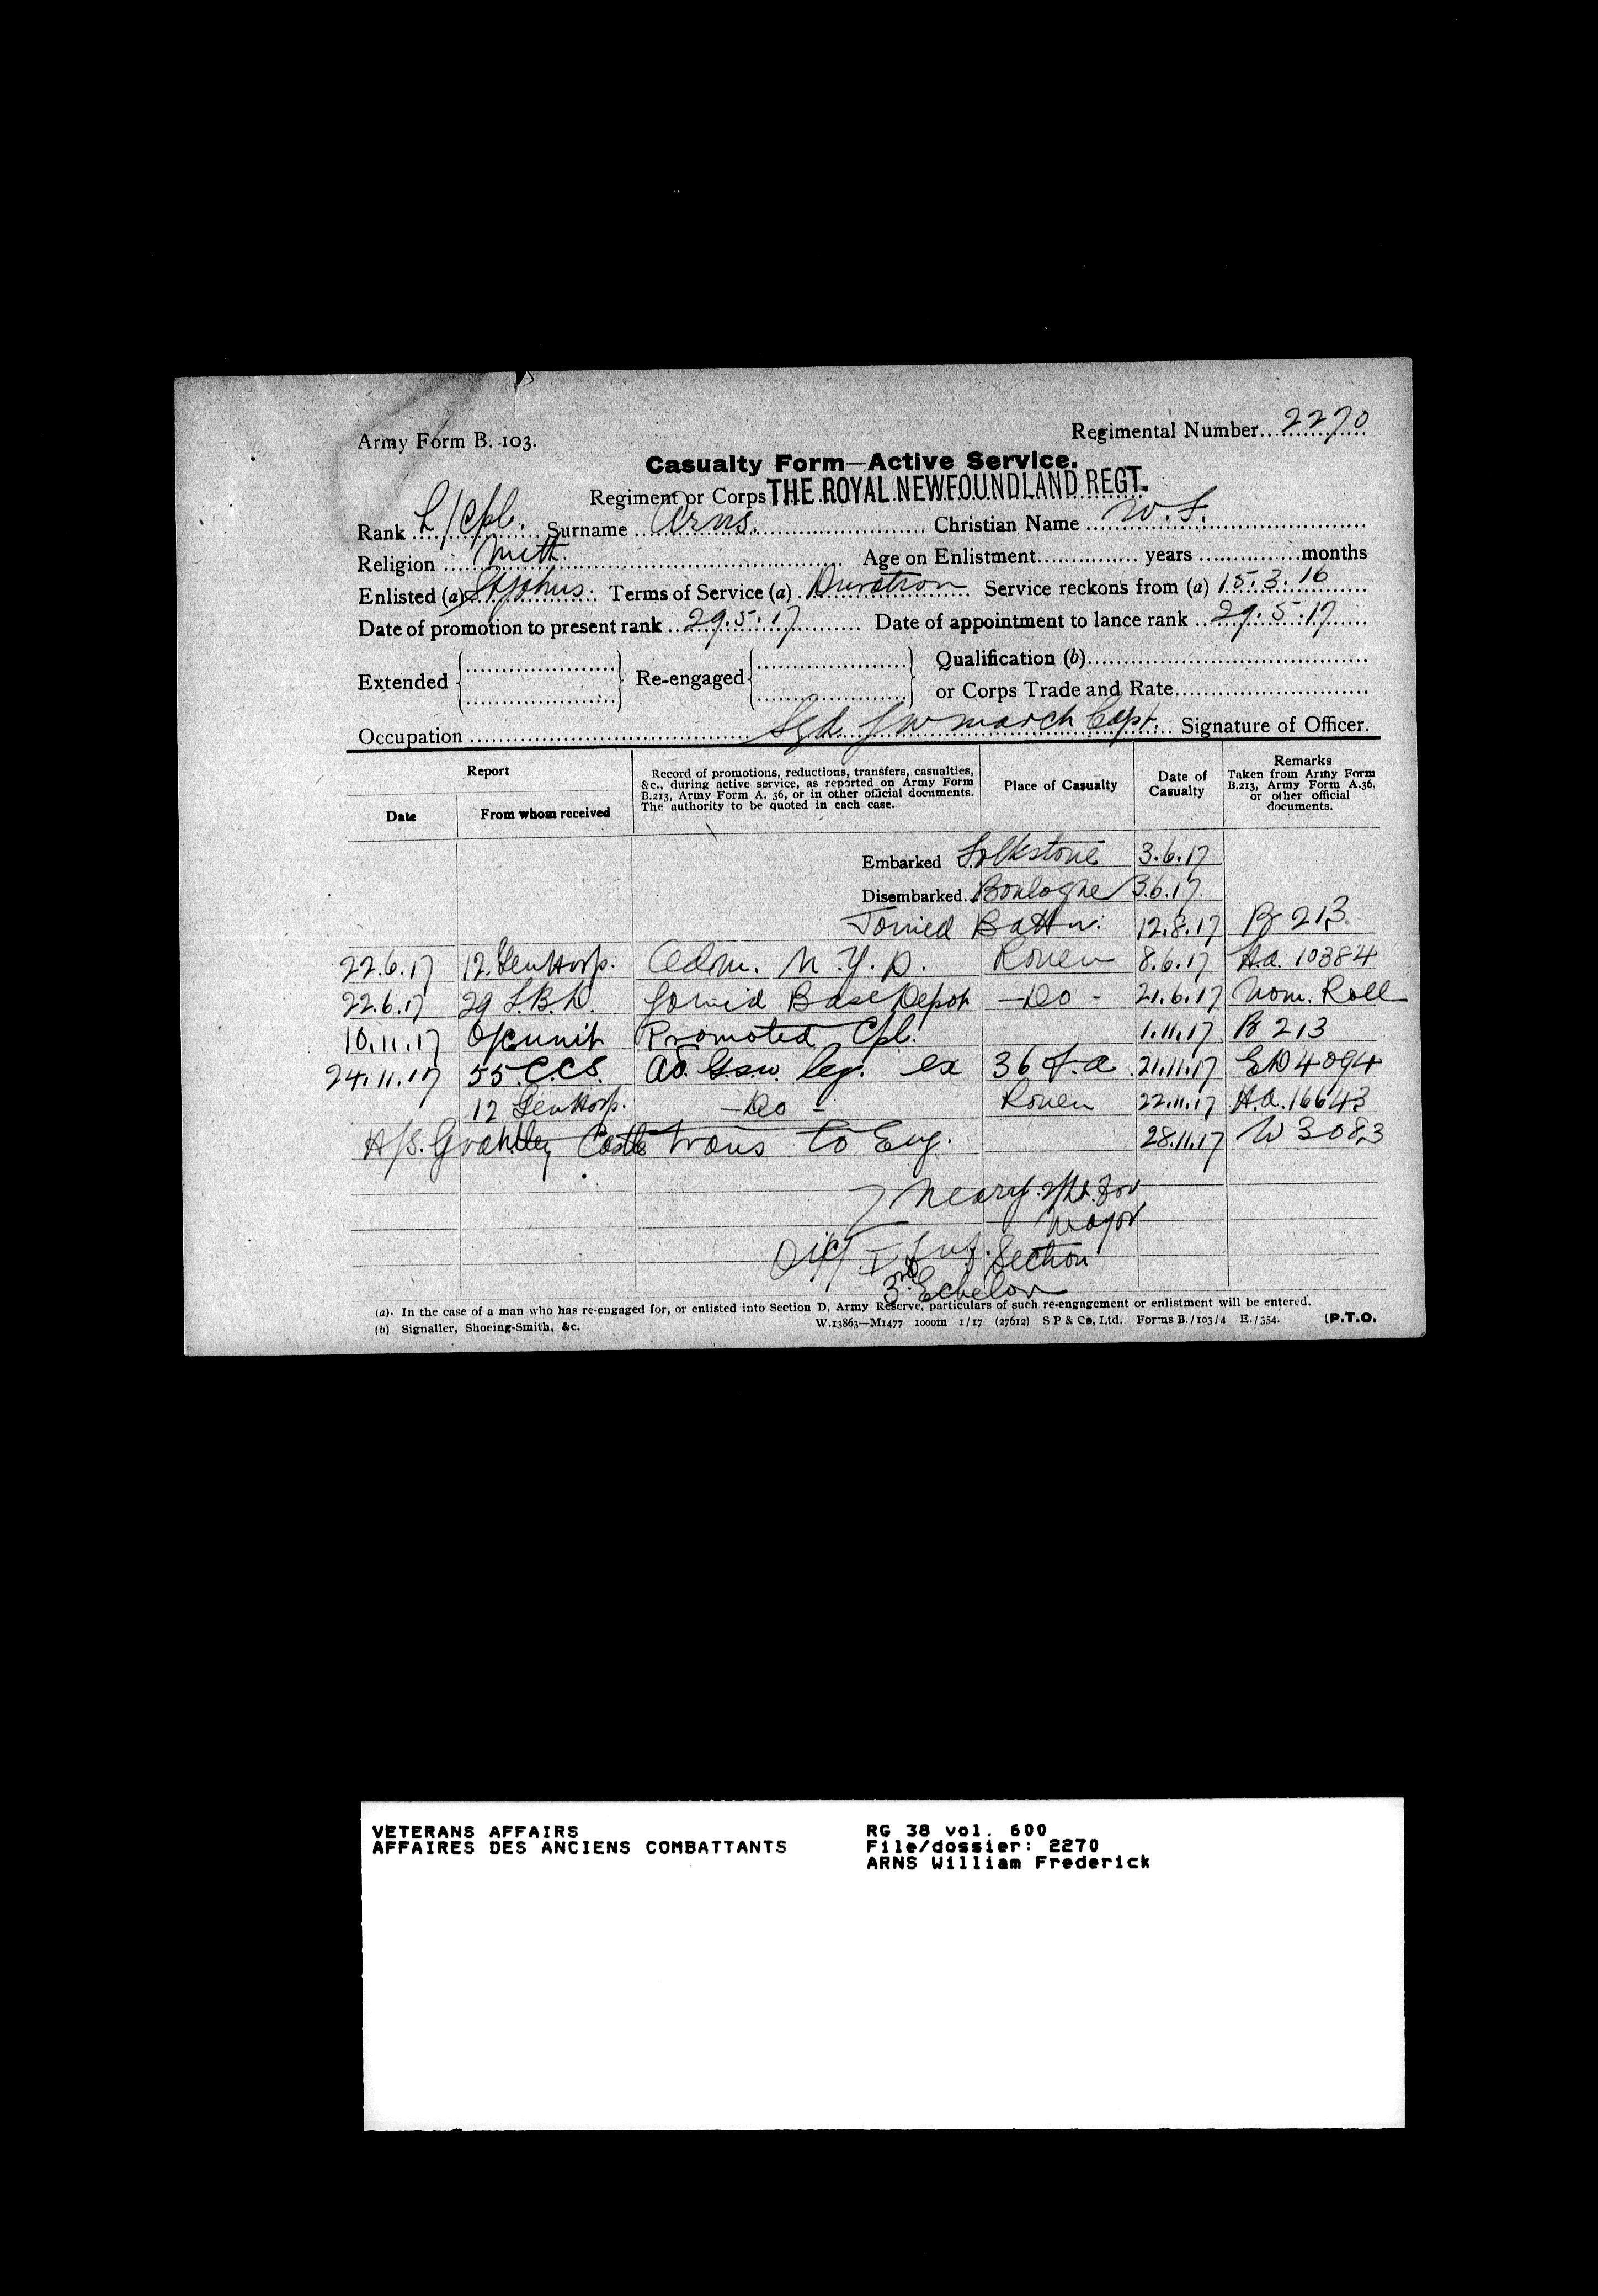 Army Form B. 103.
Regimental Number 2270
Casualty Form—Active Service.
Regiment or Corps THE ROYAL NEWFOUNDLAND REGT.
Rank L/Cpl. Surname Arns. Christian Name W. F.
Religion Meth. Age on Enlistment years months
Enlisted (a) St Johns. Terms of Service (a) Duration Service reckons from (a) 15.3.16
Date of promotion to present rank 29.5.17 Date of appointment to lance rank 29.5.17
Extended Re-engaged Qualification (b)
or Corps Trade and Rate
Occupation Sgd. J W March Capt. Signature of Officer.
Report Record of promotions, reductions, transfers, casualties, &c., during active service, as reported on Army Form B.213, Army Form A. 36, or in other official documents. The authority to be quoted in each case. Place of Casualty Date of Casualty Remarks Taken from Army Form B.213, Army Form A.36, or other official documents.
Date From whom received
Embarked Folkstone 3.6.17
Disembarked. Boulogne 3.6.17.
Joined Battn. 12.8.17 B 213
22.6.17 12.Gen Hosp. Adm. N.Y.D. Rouen 8.6.17 Aa. 10384
22.6.17 29 I.B.D. Joined Base Depot -Do- 21.6.17 Nom. Roll
10.11.17 O/C unit Promoted Cpl. 1.11.17 B 213
24.11.17 55 C.C.S. ad. G.s.w. leg. ex 36 F.a 21.11.17 ED 4094
12 Gen Hosp. -Do- Rouen 22.11.17 A.a.16643
H/S. Grantley Castle trans to Eng. 28.11.17 W 3083
Neary 2/Lt. for
Major
O i/c I Inf. Section
3rd Echelon
(a). In the case of a man who has re-engaged for, or enlisted into Section D, Army Reserve, particulars of such re-engagement or enlistment will be entered.
(b) Signaller, Shoeing-Smith, &c. W.13863—M1477 1000m 1/17 (27612) S P & Co, Ltd. Forms B./103/4 E./354. [P.T.O.
VETERANS AFFAIRS RG 38 vol. 600
AFFAIRES DES ANCIENS COMBATTANTS File/dossier: 2270
ARNS William Frederick